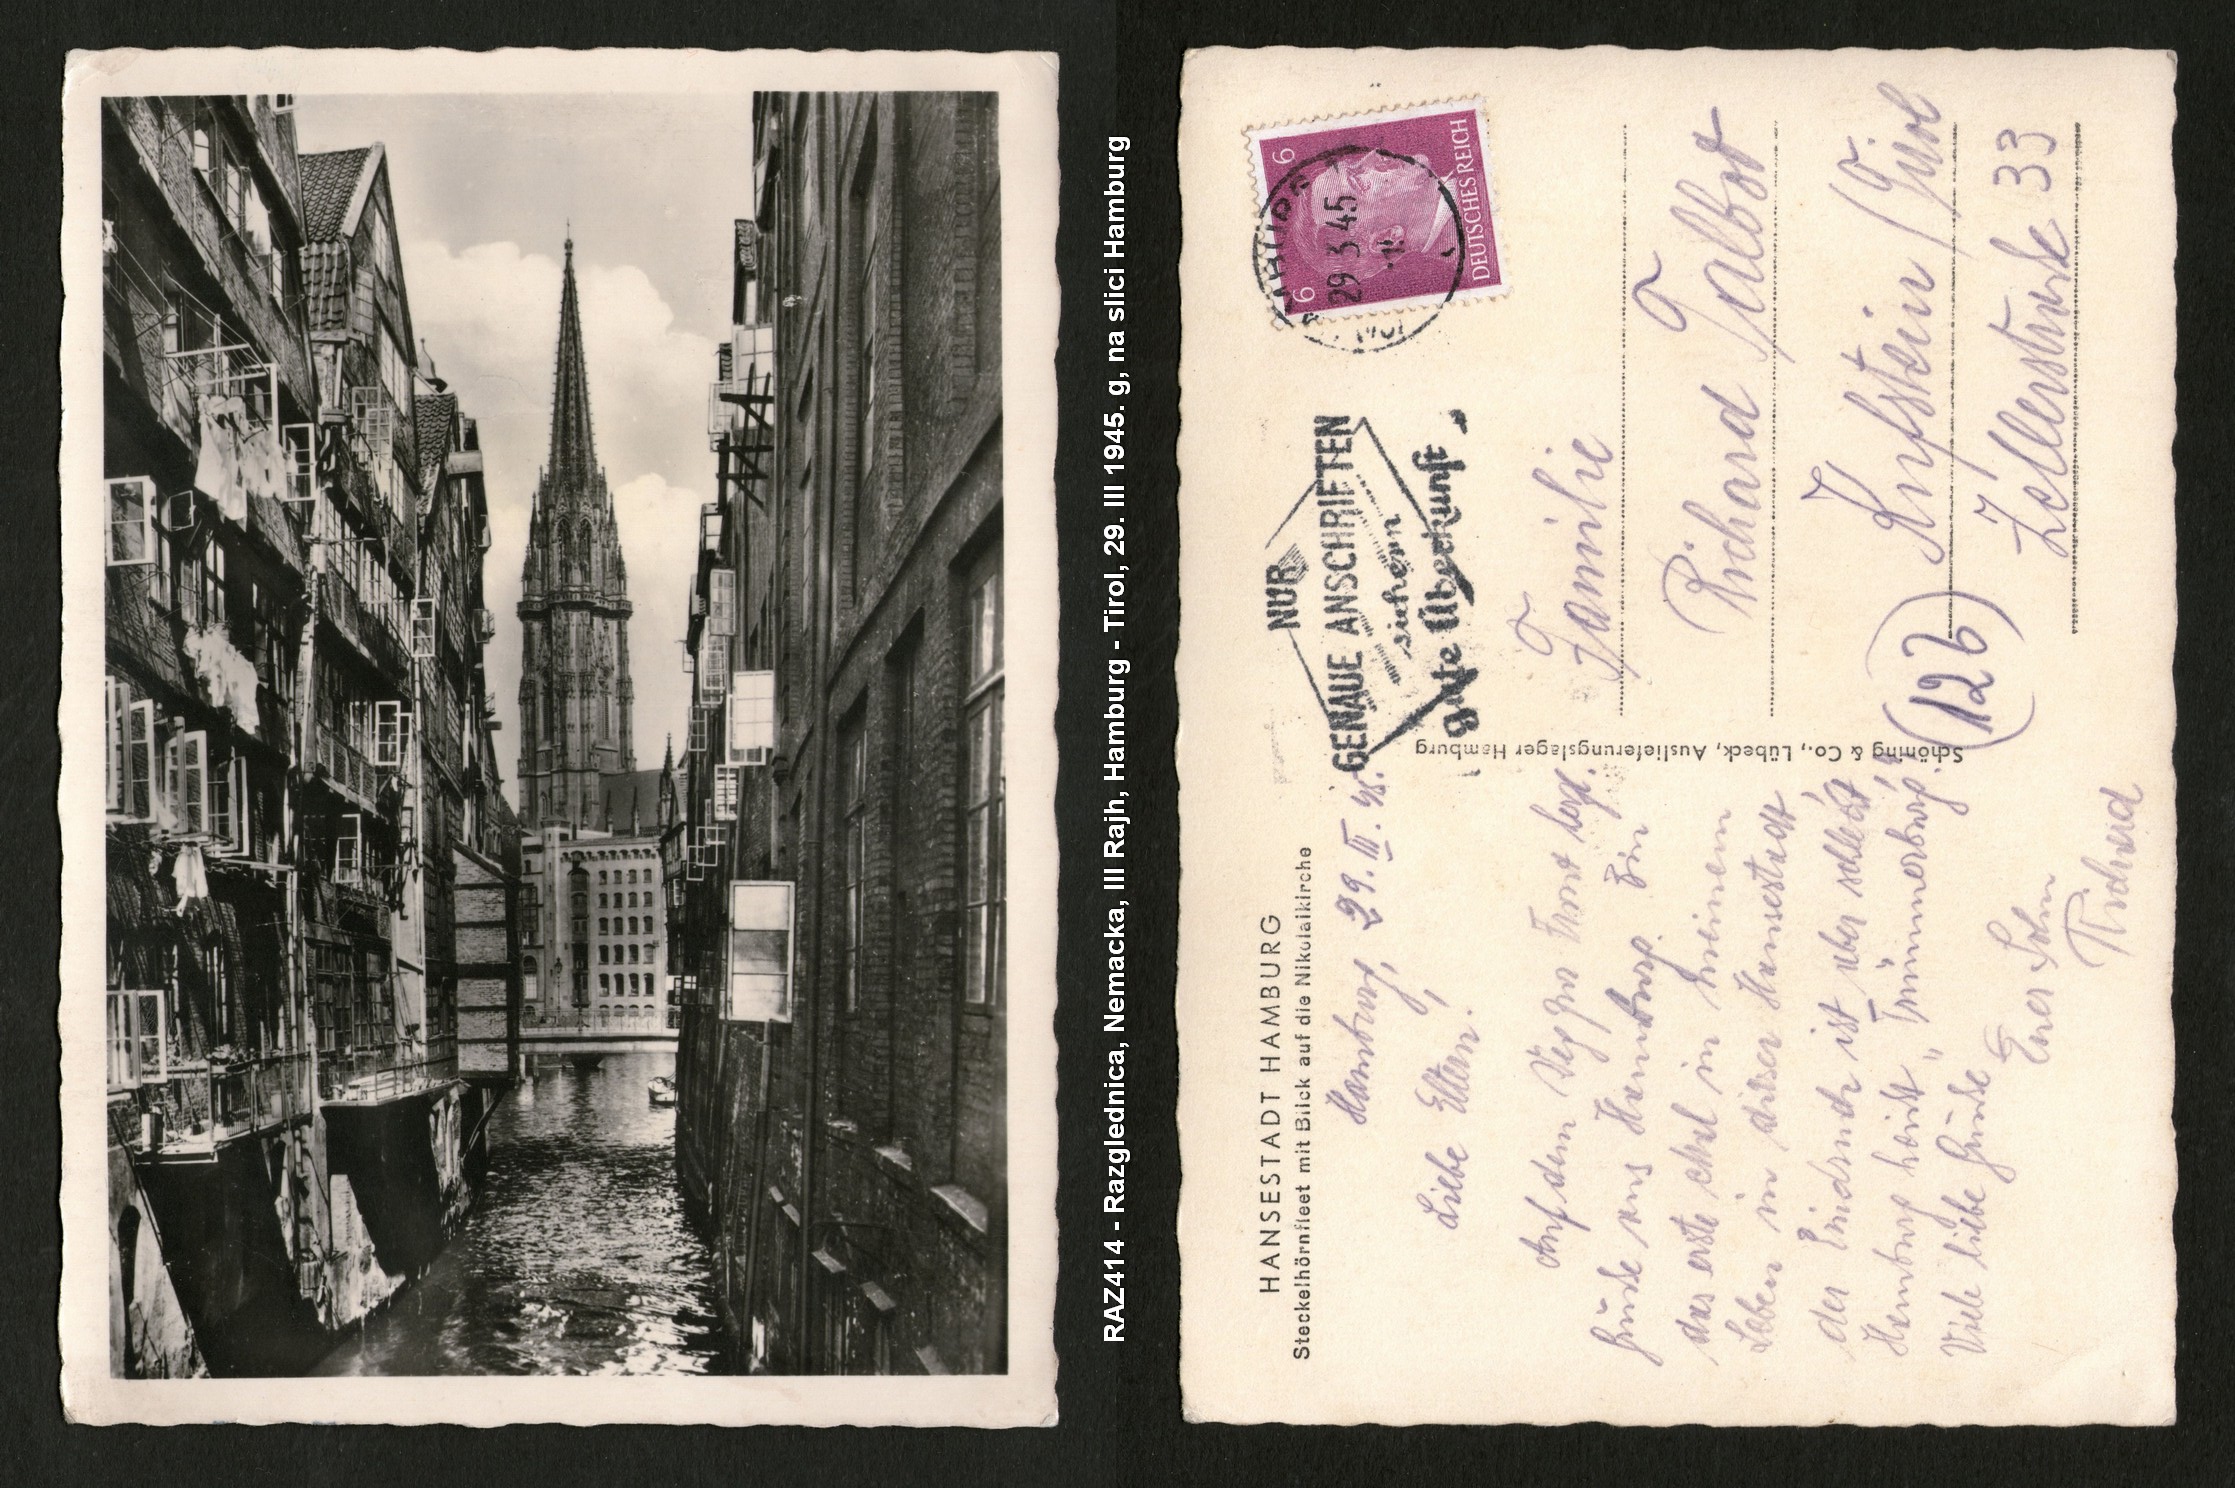 RAZ414 - Razglednica, Nemacka, III Rajh, Hamburg - Tirol, 29. III 1945. g, na slici Hamburg
HANSESTADT HAMBURG
Steckelhörnfleet mit Blick auf die Nikolaikirche
Hamburg, 29. III. 45.
Liebe Eltern!
Auf dem Weg zur Front
Grüße aus Hamburg. Bin
das erste in meinem
Leben in dieser Hansestadt
der Eindruck ist aber schlecht
Hamburg heißt „Trümmerburg".
Viele liebe Grüße
Euer Sohn
Richard
Schöning & Co., Lübeck, Auslieferungslager Hamburg
NUR
GENAUE ANSCHRIFTEN
sichern
gute Überkunft
29.3.45
6 6
DEUTSCHES REICH
Familie
Richard Talbot
(12b) Kufstein / Tirol
Zellerstraße 33